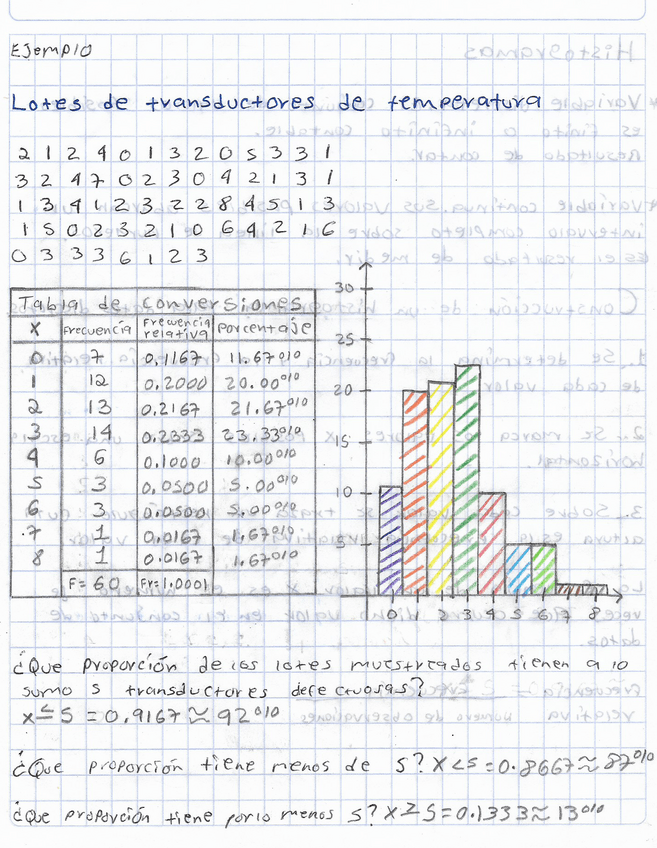 Ejemplo
Lotes de transductores de temperatura
2 1 2 4 0 1 3 2 0 5 3 3 1
3 2 4 7 0 2 3 0 4 2 1 3 1
1 3 4 1 2 3 2 2 8 4 5 1 3
1 5 0 2 3 2 1 0 6 4 2 1 6
0 3 3 3 6 1 2 3
Tabla de conversiones
X Frecuencia Frecuencia relativa Porcentaje
0 7 0.1167 11.67%
1 12 0.2000 20.00%
2 13 0.2167 21.67%
3 14 0.2333 23.33%
4 6 0.1000 10.00%
5 3 0.0500 5.00%
6 3 0.0500 5.00%
7 1 0.0167 1.67%
8 1 0.0167 1.67%
F=60 Fr=1.0001
30
25
20
15
10
5
0 1 2 3 4 5 6 7 8
¿Que proporción de los lotes muestreados tienen a lo
sumo 5 transductores defectuosas?
x≤5 = 0.9167 ≈ 92%
¿Que proporción tiene menos de 5? x<5=0.8667≈87%
¿Que proporción tiene por lo menos 5? x≥5=0.1333≈13%